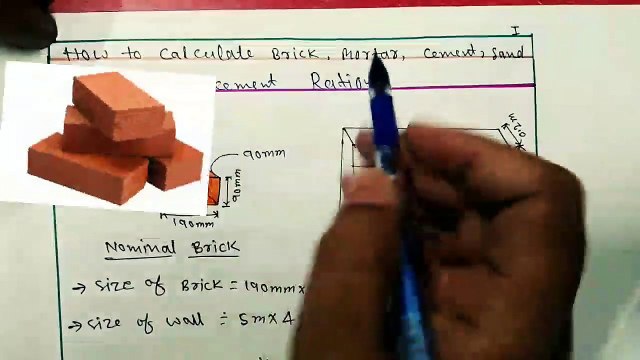 I
How to calculate Brick, Mortar, cement, sand
cement Ratio
90mm
90mm
0.2m
190mm
Nominal Brick
→ size of Brick = 190mm x
→ size of wall ÷ 5m x 4